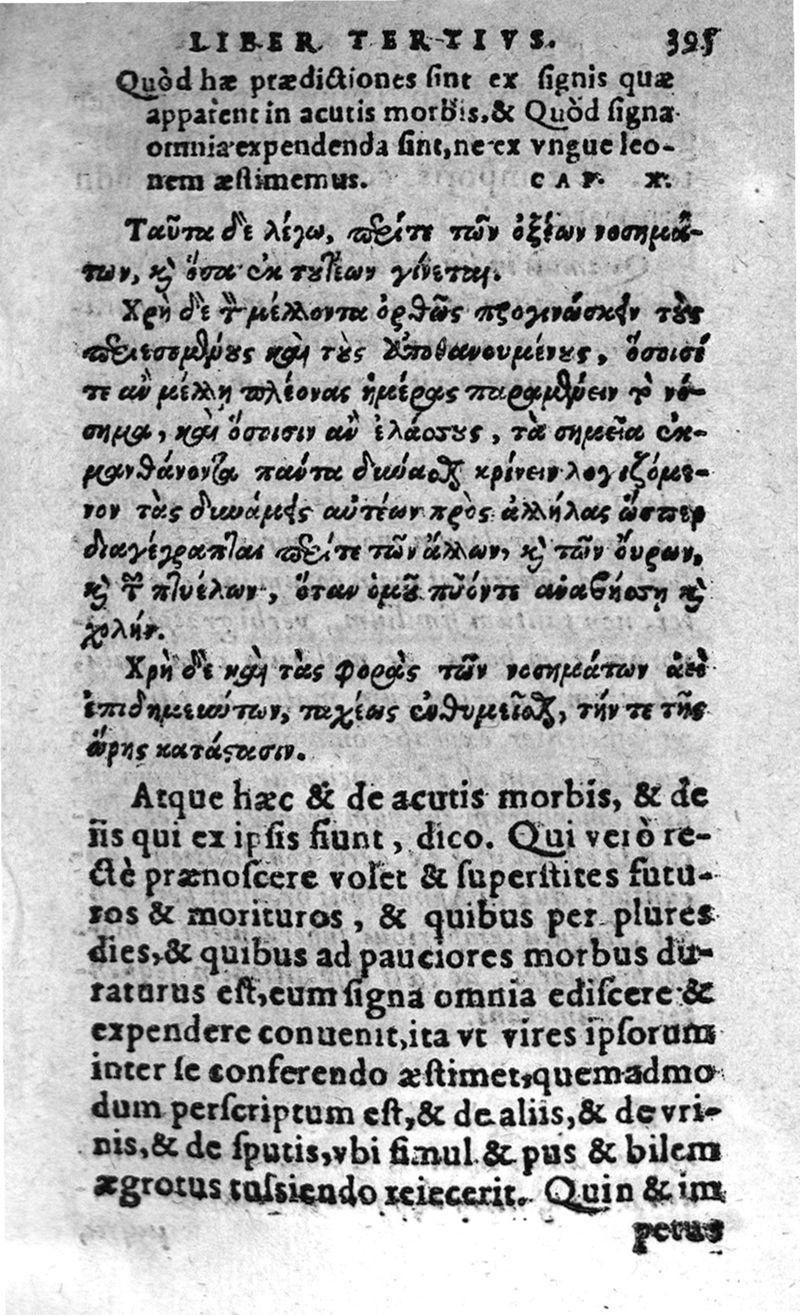 LIBER TERTIVS. 395
Quòd hæ prædictiones sint ex signis quæ
apparent in acutis morbis. & Quòd signa
omnia expendenda sint, ne ex vngue leo-
nem æstimemus. CAP. X.
Ταῦτα δὲ λέγω, περί τε τῶν ὀξέων νοσημά-
των, καὶ ὅσα ἐκ τουτέων γίνεται.
Χρὴ δὲ τὸν μέλλοντα ὀρθῶς προγινώσκειν τοὺς
περιεσομένους καὶ τοὺς ἀποθανουμένους, ὅσοισί
τε ἂν μέλλῃ πλέονας ἡμέρας παραμένειν τὸ νό-
σημα, καὶ ὅσοισιν ἂν ἐλάσσους, τὰ σημεῖα ἐκ-
μανθάνοντα πάντα δύνασθαι κρίνειν λογιζόμε-
νον τὰς δυνάμεις αὐτέων πρὸς ἀλλήλας ὥσπερ
διαγέγραπται περί τε τῶν ἄλλων, καὶ τῶν οὔρων,
καὶ τῶν πτυέλων, ὅταν ὁμοῦ πῦόν τε ἀναβήσσῃ καὶ
χολήν.
Χρὴ δὲ καὶ τὰς φορὰς τῶν νοσημάτων ἀεὶ
ἐπιδημεούτων, ταχέως ἐνθυμεῖσθαι, τήν τε τῆς
ὥρης κατάστασιν.
Atque hæc & de acutis morbis, & de
iis qui ex ipsis fiunt, dico. Qui verò re-
ctè prænoscere volet & superstites futu-
ros & morituros, & quibus per plures
dies, & quibus ad pauciores morbus du-
raturus est, eum signa omnia ediscere &
expendere conuenit, ita vt vires ipsorum
inter se conferendo æstimet, quemadmo
dum perscriptum est, & de aliis, & de vri-
nis, & de sputis, vbi simul & pus & bilem
ægrotus tussiendo reiecerit. Quin & im
petus